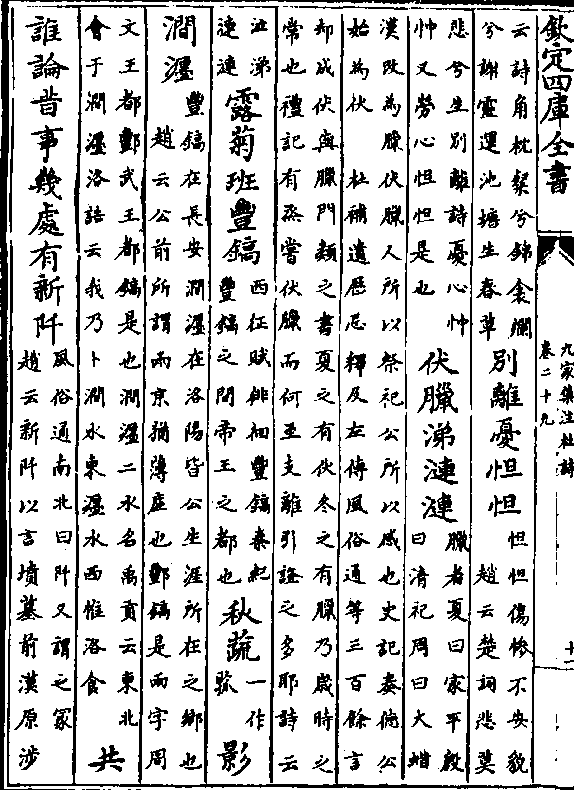 欽定四庫全書
九家集注杜詩
卷二十九
云詩角枕粲兮錦衾爛
兮謝靈運池塘生春草
別離憂怛怛
怛怛傷慘不安貌
趙云楚詞悲莫
悲兮生別離詩憂心忡
忡又勞心怛怛是也
伏臘涕漣漣
臘者夏曰家平殷
曰清祀周曰大蜡
漢改為臘伏臘人所以祭祀公所以感也史記秦德公
始為伏　杜補遺歷忌釋及左傳風俗通等三百餘言
却成伏與臘門類之書夏之有伏冬之有臘乃歲時之
常也禮記有烝嘗伏臘而何至支離引證之多耶詩云
泣涕
漣漣
露菊班豐鎬
西征賦徘徊豐鎬秦紀
豐鎬之間帝王之都也
秋蔬
一作
菰
影
澗瀍
豐鎬在長安澗瀍在洛陽皆公生涯所在之鄉也
趙云公前所謂兩京猶薄産也酆鎬是兩字周
文王都酆武王都鎬是也澗瀍二水名禹貢云東北
會于澗瀍洛誥云我乃卜澗水東瀍水西惟洛食
共
誰論昔事幾處有新阡
風俗通南北曰阡又謂之冢
趙云新阡以言墳墓前漢原涉